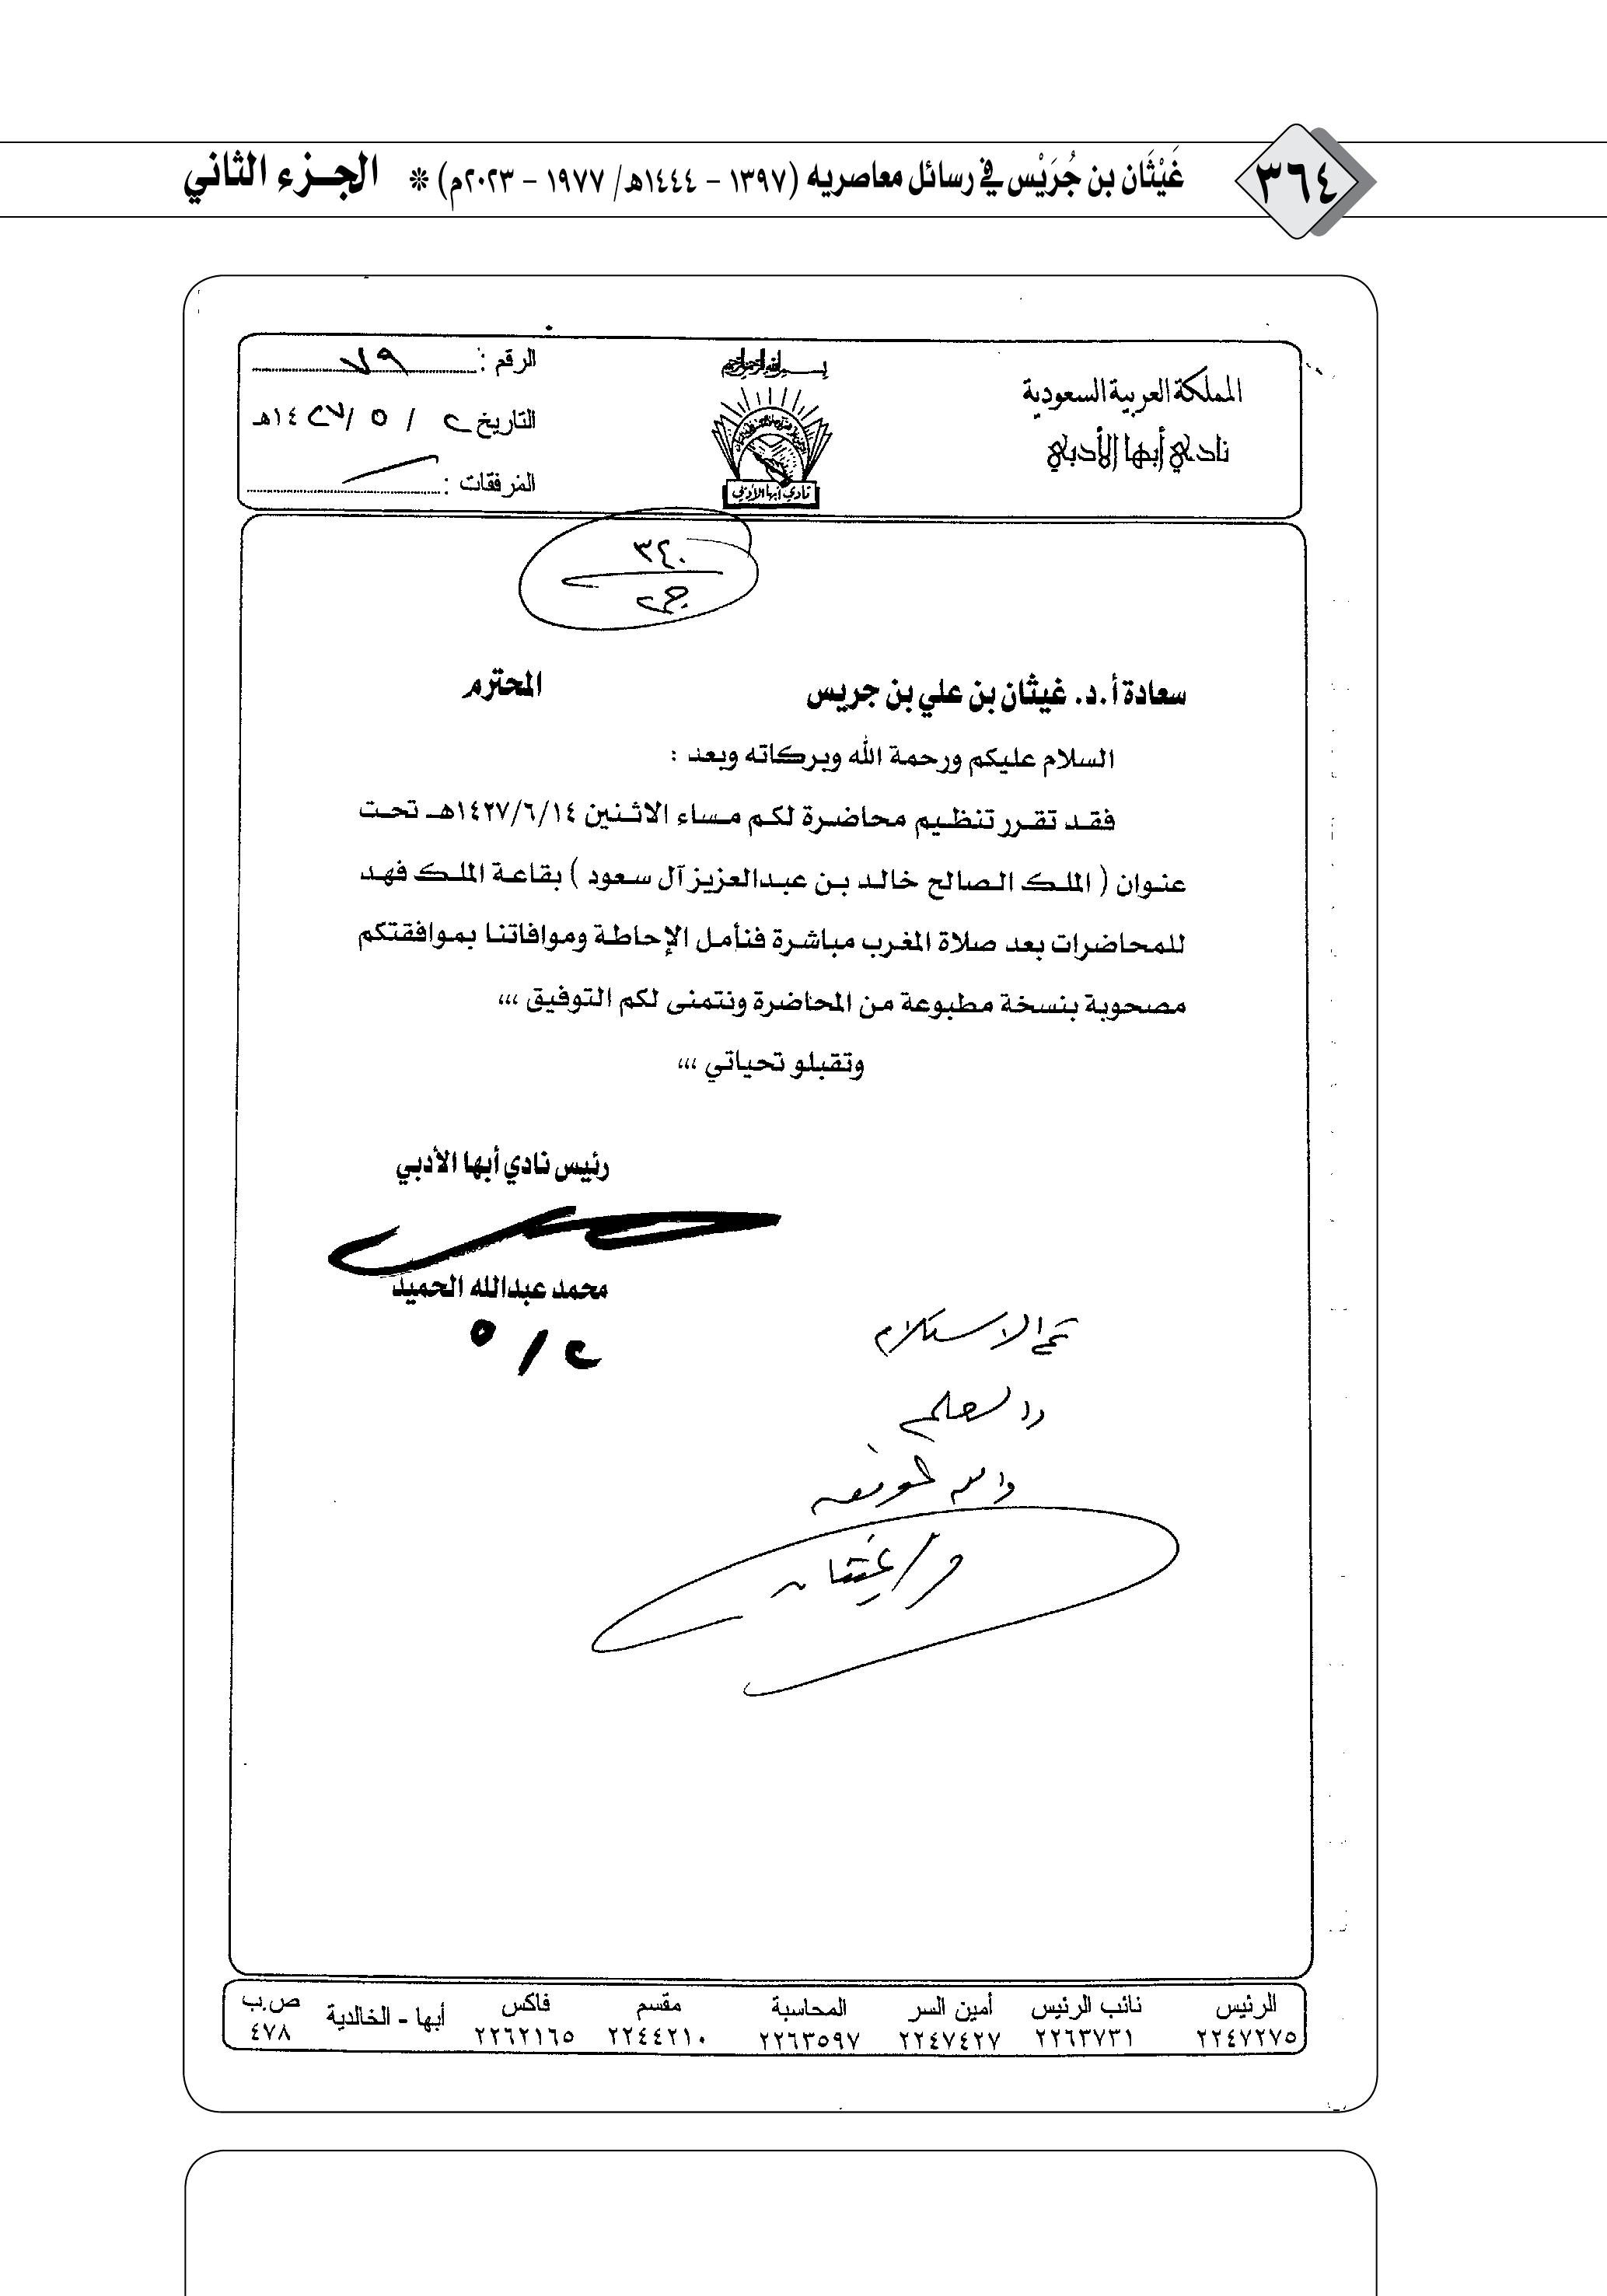 ٣٦٤
غَيْثَان بن جُرَيْس في رسائل معاصريه (١٣٩٧ - ١٤٤٤هـ/ ١٩٧٧ - ٢٠٢٣م) ❊ الجزء الثاني
بسم الله الرحمن الرحيم
المملكة العربية السعودية
نادي أبها الأدبي
نادي أبها الأدبي
الرقم : ٧٩
التاريخ ٢ / ٥ / ١٤٢٧هـ
المرفقات :
٣٢٠
سعادة أ.د. غيثان بن علي بن جريس المحترم
السلام عليكم ورحمة الله وبركاته وبعد :
فقد تقرر تنظيم محاضرة لكم مساء الاثنين ١٤٢٧/٦/١٤هـ تحت
عنوان ( الملك الصالح خالد بن عبدالعزيز آل سعود ) بقاعة الملك فهد
للمحاضرات بعد صلاة المغرب مباشرة فنأمل الإحاطة وموافاتنا بموافقتكم
مصحوبة بنسخة مطبوعة من المحاضرة ونتمنى لكم التوفيق ،،،
وتقبلو تحياتي ،،،
رئيس نادي أبها الأدبي
محمد عبدالله الحميد
٢ / ٥
تم الاستلام
غيثان
الرئيس نائب الرئيس أمين السر المحاسبة مقسم فاكس أبها - الخالدية ص.ب
٢٢٤٧٢٧٥ ٢٢٦٣٧٣١ ٢٢٤٧٤٢٧ ٢٢٦٣٥٩٧ ٢٢٤٤٢١٠ ٢٢٦٢١٦٥ ٤٧٨